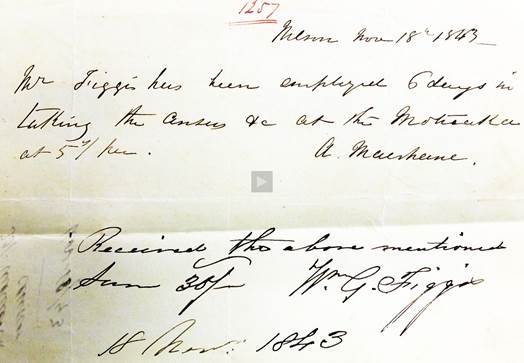 1257
Nelson Nov 18th 1843
Mr Figgis has been employed 6 days in
taking the census &c at the Motueka
at 5/ per. A.
Received the above mentioned
Sum 30/- Wm G. Figgis
18 Novr: 1843